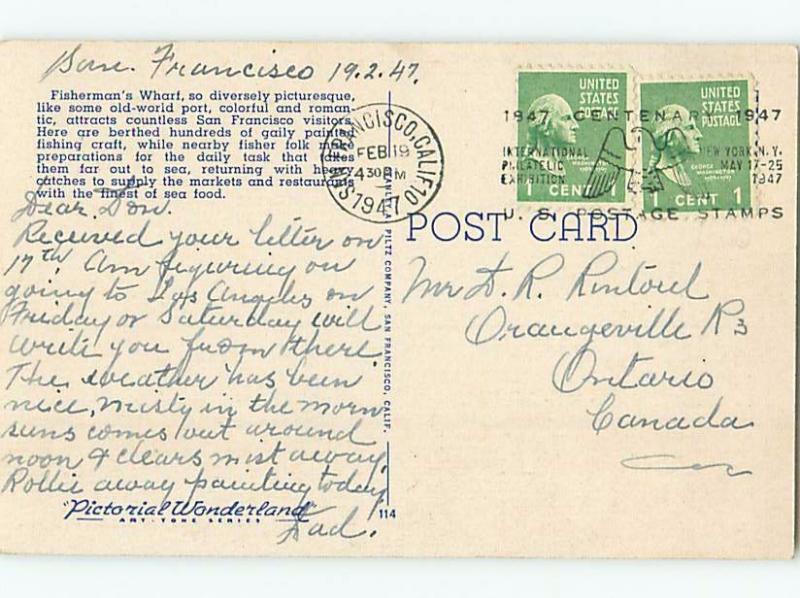 San. Francisco 19.2.47.
Fisherman's Wharf, so diversely picturesque,
like some old-world port, colorful and roman-
tic, attracts countless San Francisco visitors.
Here are berthed hundreds of gaily painted
fishing craft, while nearby fisher folk make
preparations for the daily task that takes
them far out to sea, returning with heavy
catches to supply the markets and restaurants
with the finest of sea food.
Dear Don.
Received your letter on
17th. Am figuring on
going to Los Angeles on
Friday or Saturday will
write you from there.
The weather has been
nice, misty in the morn
suns comes out around
noon & clears mist away.
Rollie away painting today
Dad.
"Pictorial Wonderland"
ART-TONE SERIES
114
PILTZ COMPANY, SAN FRANCISCO, CALIF.
SAN FRANCISCO, CALIF. 10
FEB 19
4 30 PM
1947
1947 CENTENARY 1947
INTERNATIONAL
PHILATELIC
EXHIBITION
NEW YORK, N.Y.
MAY 17-25
1947
U. S. POSTAGE STAMPS
UNITED
STATES
POSTAGE
WASHINGTON
1 CENT 1
UNITED
STATES
POSTAGE
GEORGE
WASHINGTON
1 CENT 1
POST CARD
Mr D. R. Rintoul
Orangeville R3
Ontario
Canada